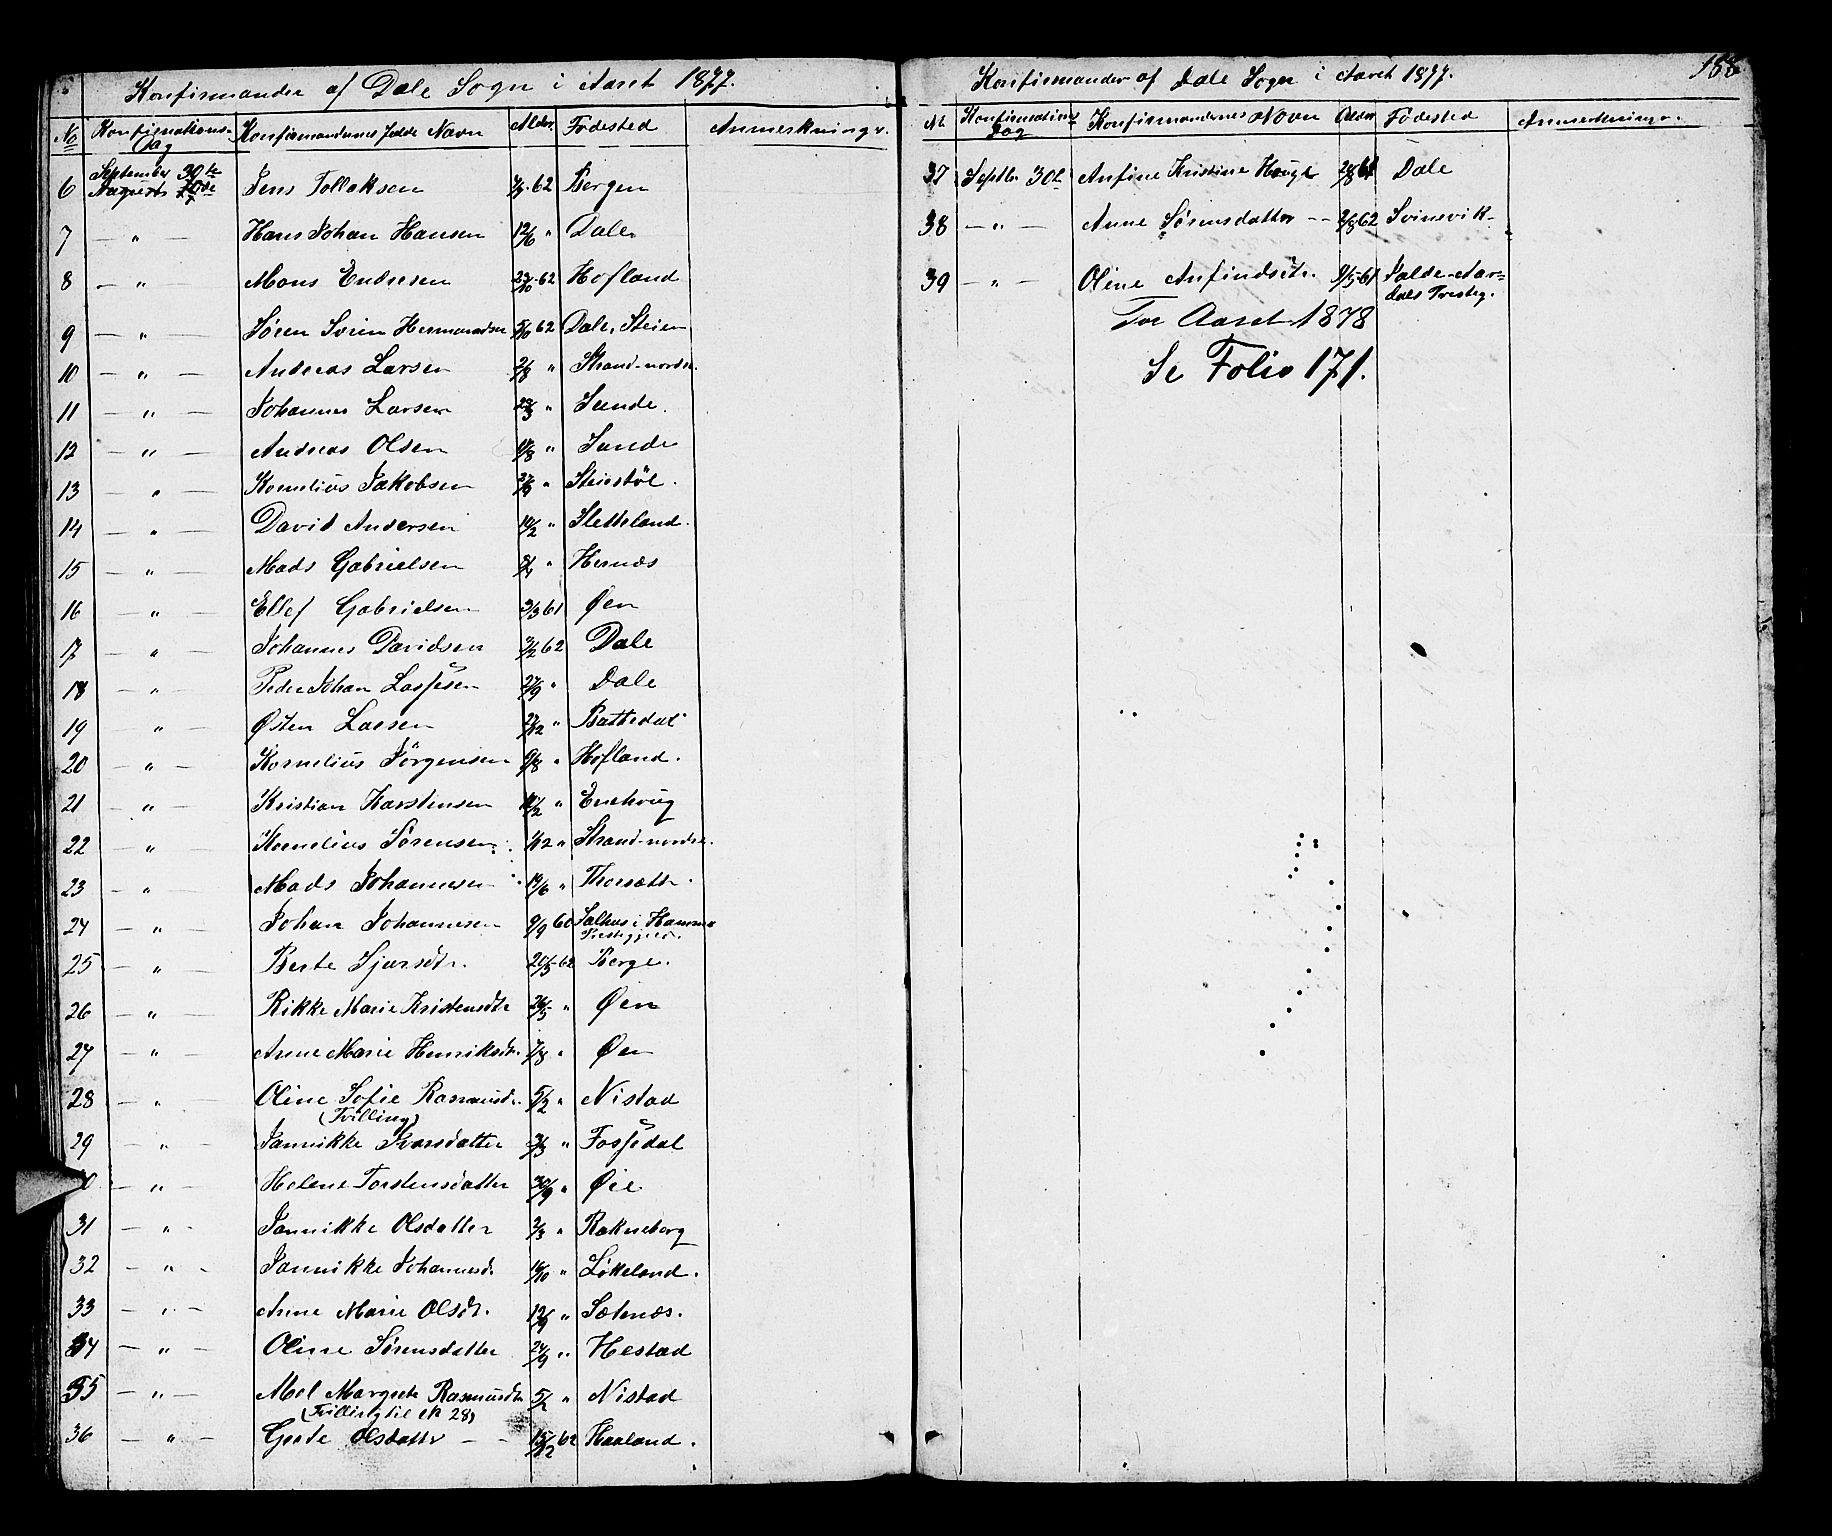 Konfirmander af Dale Sogn i Aaret 1877.
No Konfirmations- Dag Konfirmandernes fulde Navn Alder. Fødested Anmerkninger.
September 30te
6 Augusts Jens Tollaksen 62 Bergen
7 — " — Hans Johan Hansen 12/6 " Dale
8 — " — Mons Endresen 62 Hofland
9 — " — Søren Svein Hermansen 5/10 62 Dale, Steien
10 — " — Andreas Larsen 2/8 " Strand-nordre.
11 — " — Johannes Larsen 23/3 " Sande.
12 — " — Andreas Olsen " Sande
13 — " — Kornelius Jakobsen "
14 — " — David Andersen " Sletteland.
15 — " — Mads Gabrielsen " Hernæs
16 — " — Ellef Gabrielsen 3/3 61 Øen
17 — " — Johannes Davidsen 3/2 62 Dale
18 — " — Peder Johan Lassesen 27/9 " Dale
19 — " — Østen Larsen " Battedal
20 — " — Kornelius Jørgensen 9/8 " Hofland.
21 — " — Kristian Karstensen "
22 — " — Kornelius Sørensen " Strand-nordre.
23 — " — Mads Johannesen 19/6 "
24 — " — Johan Johannesen 9/9 60 Salhus i Hammer
Prestegjeld.
25 — " — Berte Sjursdtr. 62 Berge.
26 — " — Rikke Marie Kristensdtr 26/5 " Øen
27 — " — Anne Marie Henriksdtr. 7/8 " Øen
28 — " — Oline Sofie Rasmusdtr. 5/2 " Nistad
(Tvilling)
29 — " — Jannikke Ivarsdatter " Fossedal
30 — " — Helene Torstensdatter 30/9 " Øie
31 — " — Jannikke Olsdatter 2/3 " Rakneberg
32 — " — Jannikke Johannesd. " Løkeland.
33 — " — Anne Marie Olsdt. 12/9 " Sætenæs.
34 — " — Oline Sørensdatter 24/9 " Hestad
35 — " — Mol Margrete Rasmusdtr 5/2 " Nistad
(Tvilling til No 28)
36 — " — Grete Olsdatter — — 15/2 62 Haaland.
Konfirmander af Dale Sogn i Aaret 1877. 188
No. Konfirmations Dag Konfirmandernes Navn Alder Fødested Anmerkninger.
37 Septbr. 30te Anfine Kristine Hauge 61 Dale
38 — " — Anne Sørensdatter — 2/8 62 Svinevik
39 — " — Oline Anfindsdtr. 61
dals Presteg.
For Aaret 1878
Se Folio 171.